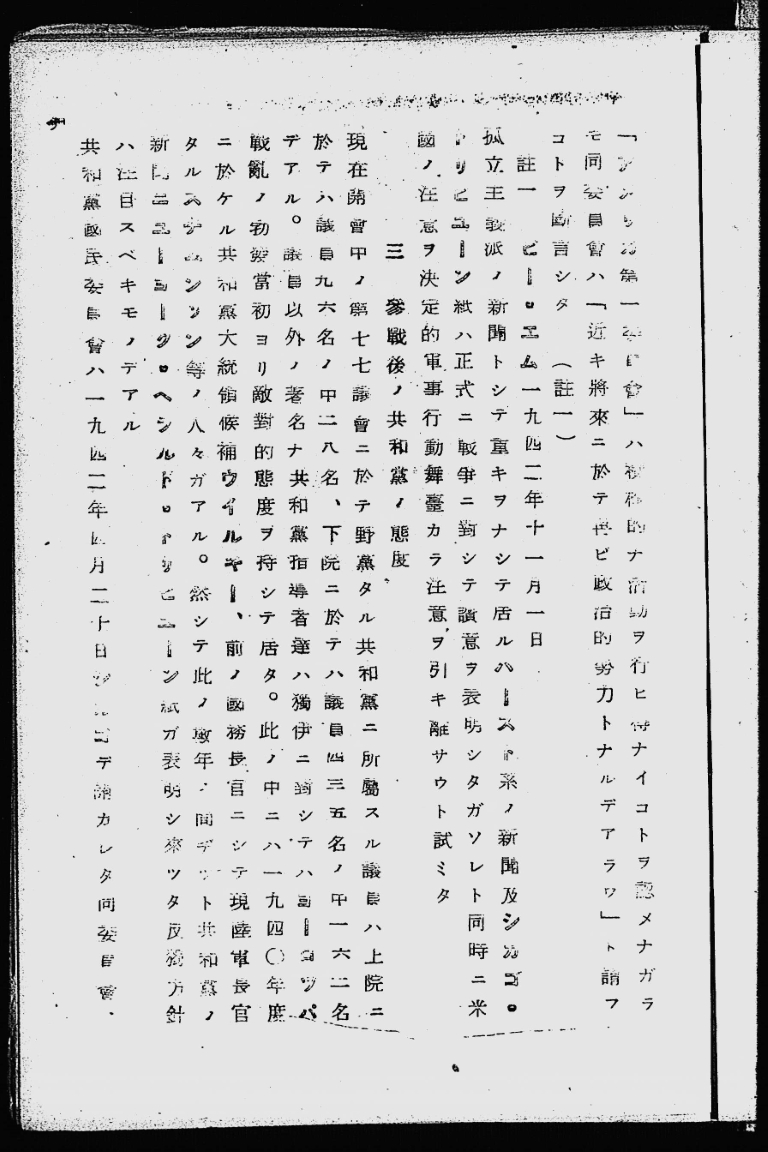 「アメリカ第一委員會」ハ積極的ナ活動ヲ行ヒ得ナイコトヲ認メナガラ
モ同委員會ハ「近キ將來ニ於テ再ビ政治的努力トナルデアラウ」ト謂フ
コトヲ斷言シタ（註一）
註一　ピー・エム一九四二年十一月一日
孤立主義派ノ新聞トシテ重キヲナシテ居ルハースト系ノ新聞及シカゴ・
トリビユーン紙ハ正式ニ戰爭ニ對シテ讃意ヲ表明シタガソレト同時ニ米
國ノ注意ヲ決定的軍事行動舞臺カラ注意ヲ引キ離サウト試ミタ
三　參戰後ノ共和黨ノ態度
現在開會中ノ第七七議會ニ於テ野黨タル共和黨ニ所屬スル議員ハ上院ニ
於テハ議員九六名ノ中二八名、下院ニ於テハ議員四三五名ノ中一六二名
デアル。議員以外ノ著名ナ共和黨指導者達ハ獨伊ニ對シテハヨーロツパ
戰亂ノ勃發當初ヨリ敵對的態度ヲ持シテ居タ。此ノ中ニハ一九四〇年度
ニ於ケル共和黨大統領候補ウイルキー、前ノ國務長官ニシテ現陸軍長官
タルスチムソン等ノ人々ガアル。然シテ此ノ數年ノ間ヂツト共和黨ノ
新聞ニユーヨーク・ヘラルド・トリビユーン紙ガ表明シ來ツタ反獨方針
ハ注目スベキモノデアル
共和黨國民委員會ハ一九四二年四月二十日シカゴデ開カレタ同委員會、